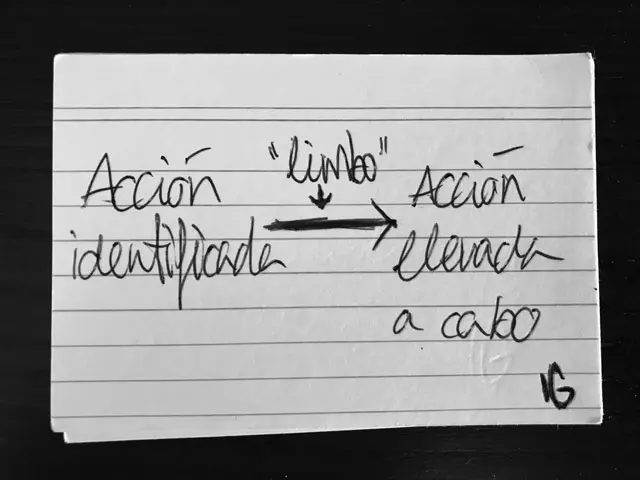 Acción
identificada
"limbo"
Acción
llevada
a cabo
IG